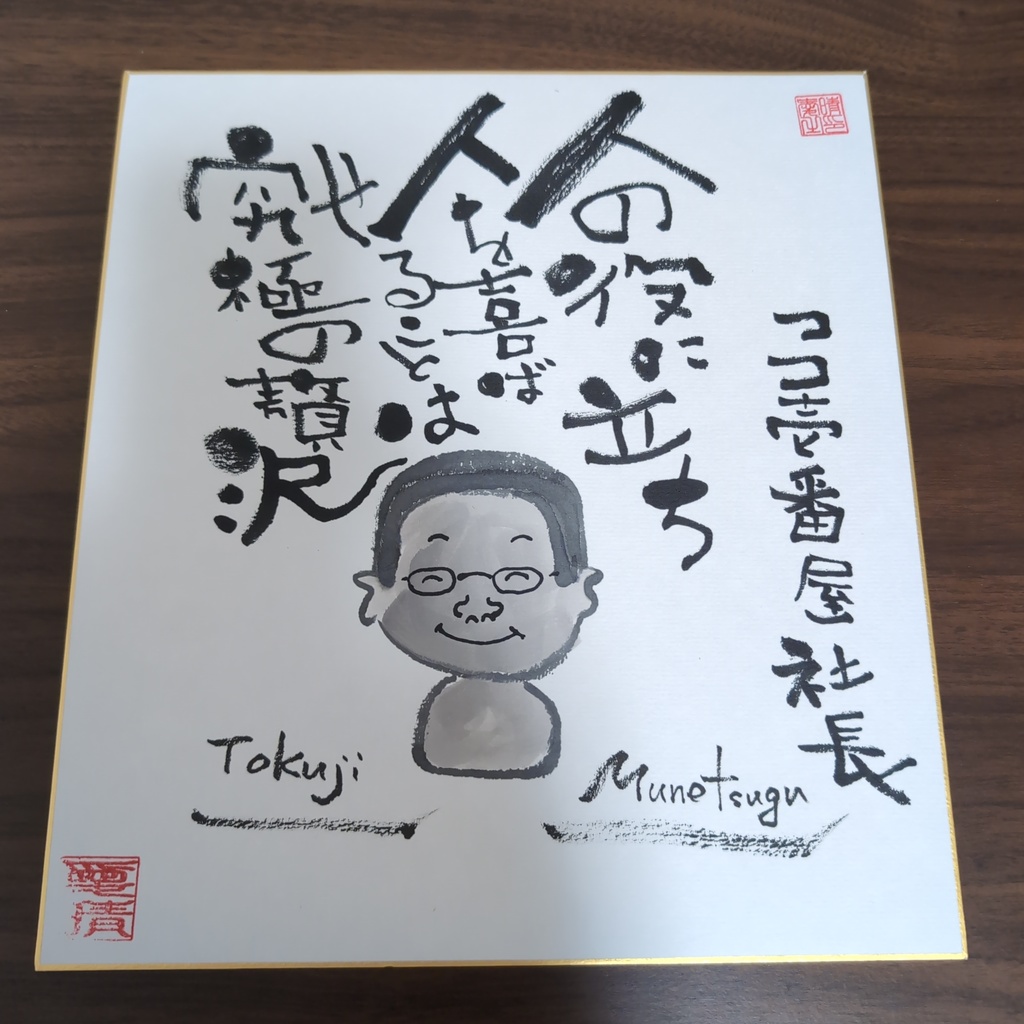 ココ壱番屋社長
人の役に立ち
人を喜ば
せることは
究極の贅沢
Tokuji Munetsugu